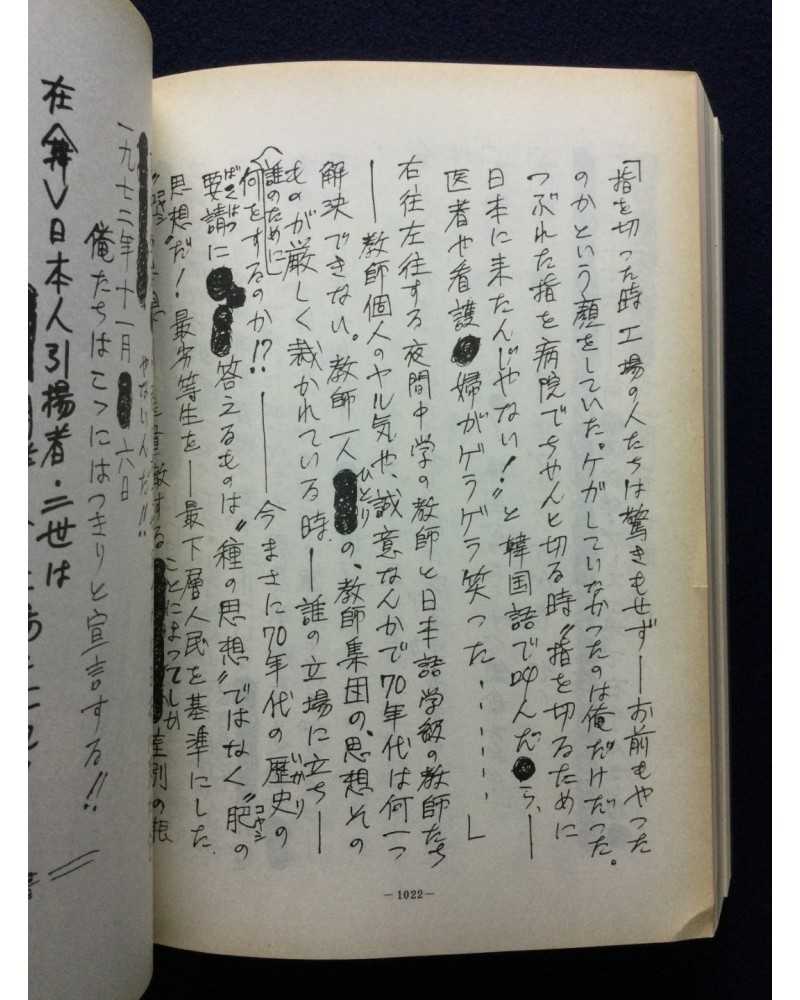 「指を切った時工場の人たちは驚きもせず―お前もやった
のかという顔をしていた。ケガしていなかったのは俺だけだった。
つぶれた指を病院でちゃんと切る時〝指を切るために
日本に来たんじゃない！〟と韓国語で叫んだら、―
医者や看護婦がゲラゲラ笑った・・・・・・」
右往左往する夜間中学の教師と日本語学級の教師たち
―教師個人のヤル気や、誠意なんかで70年代は何一つ
解決できない。教師一人ひとりの、教師集団の、思想その
ものが厳しく裁かれている時、―誰の立場に立ち―
（誰のために）
何をするのか!?――今まさに70年代の歴史の
いかり
要請に答えるものは〝種の思想〟ではなく〝肥の
ばくはつ
コヤシ
思想〟だ！最劣等生を―最下層人民を基準にした
ことによってしか
差別の根
―1022―
やないんだ!!〟
一九七二年十一月六日
俺たちはここにはっきりと宣言する!!
在 日本人引揚者・二世は